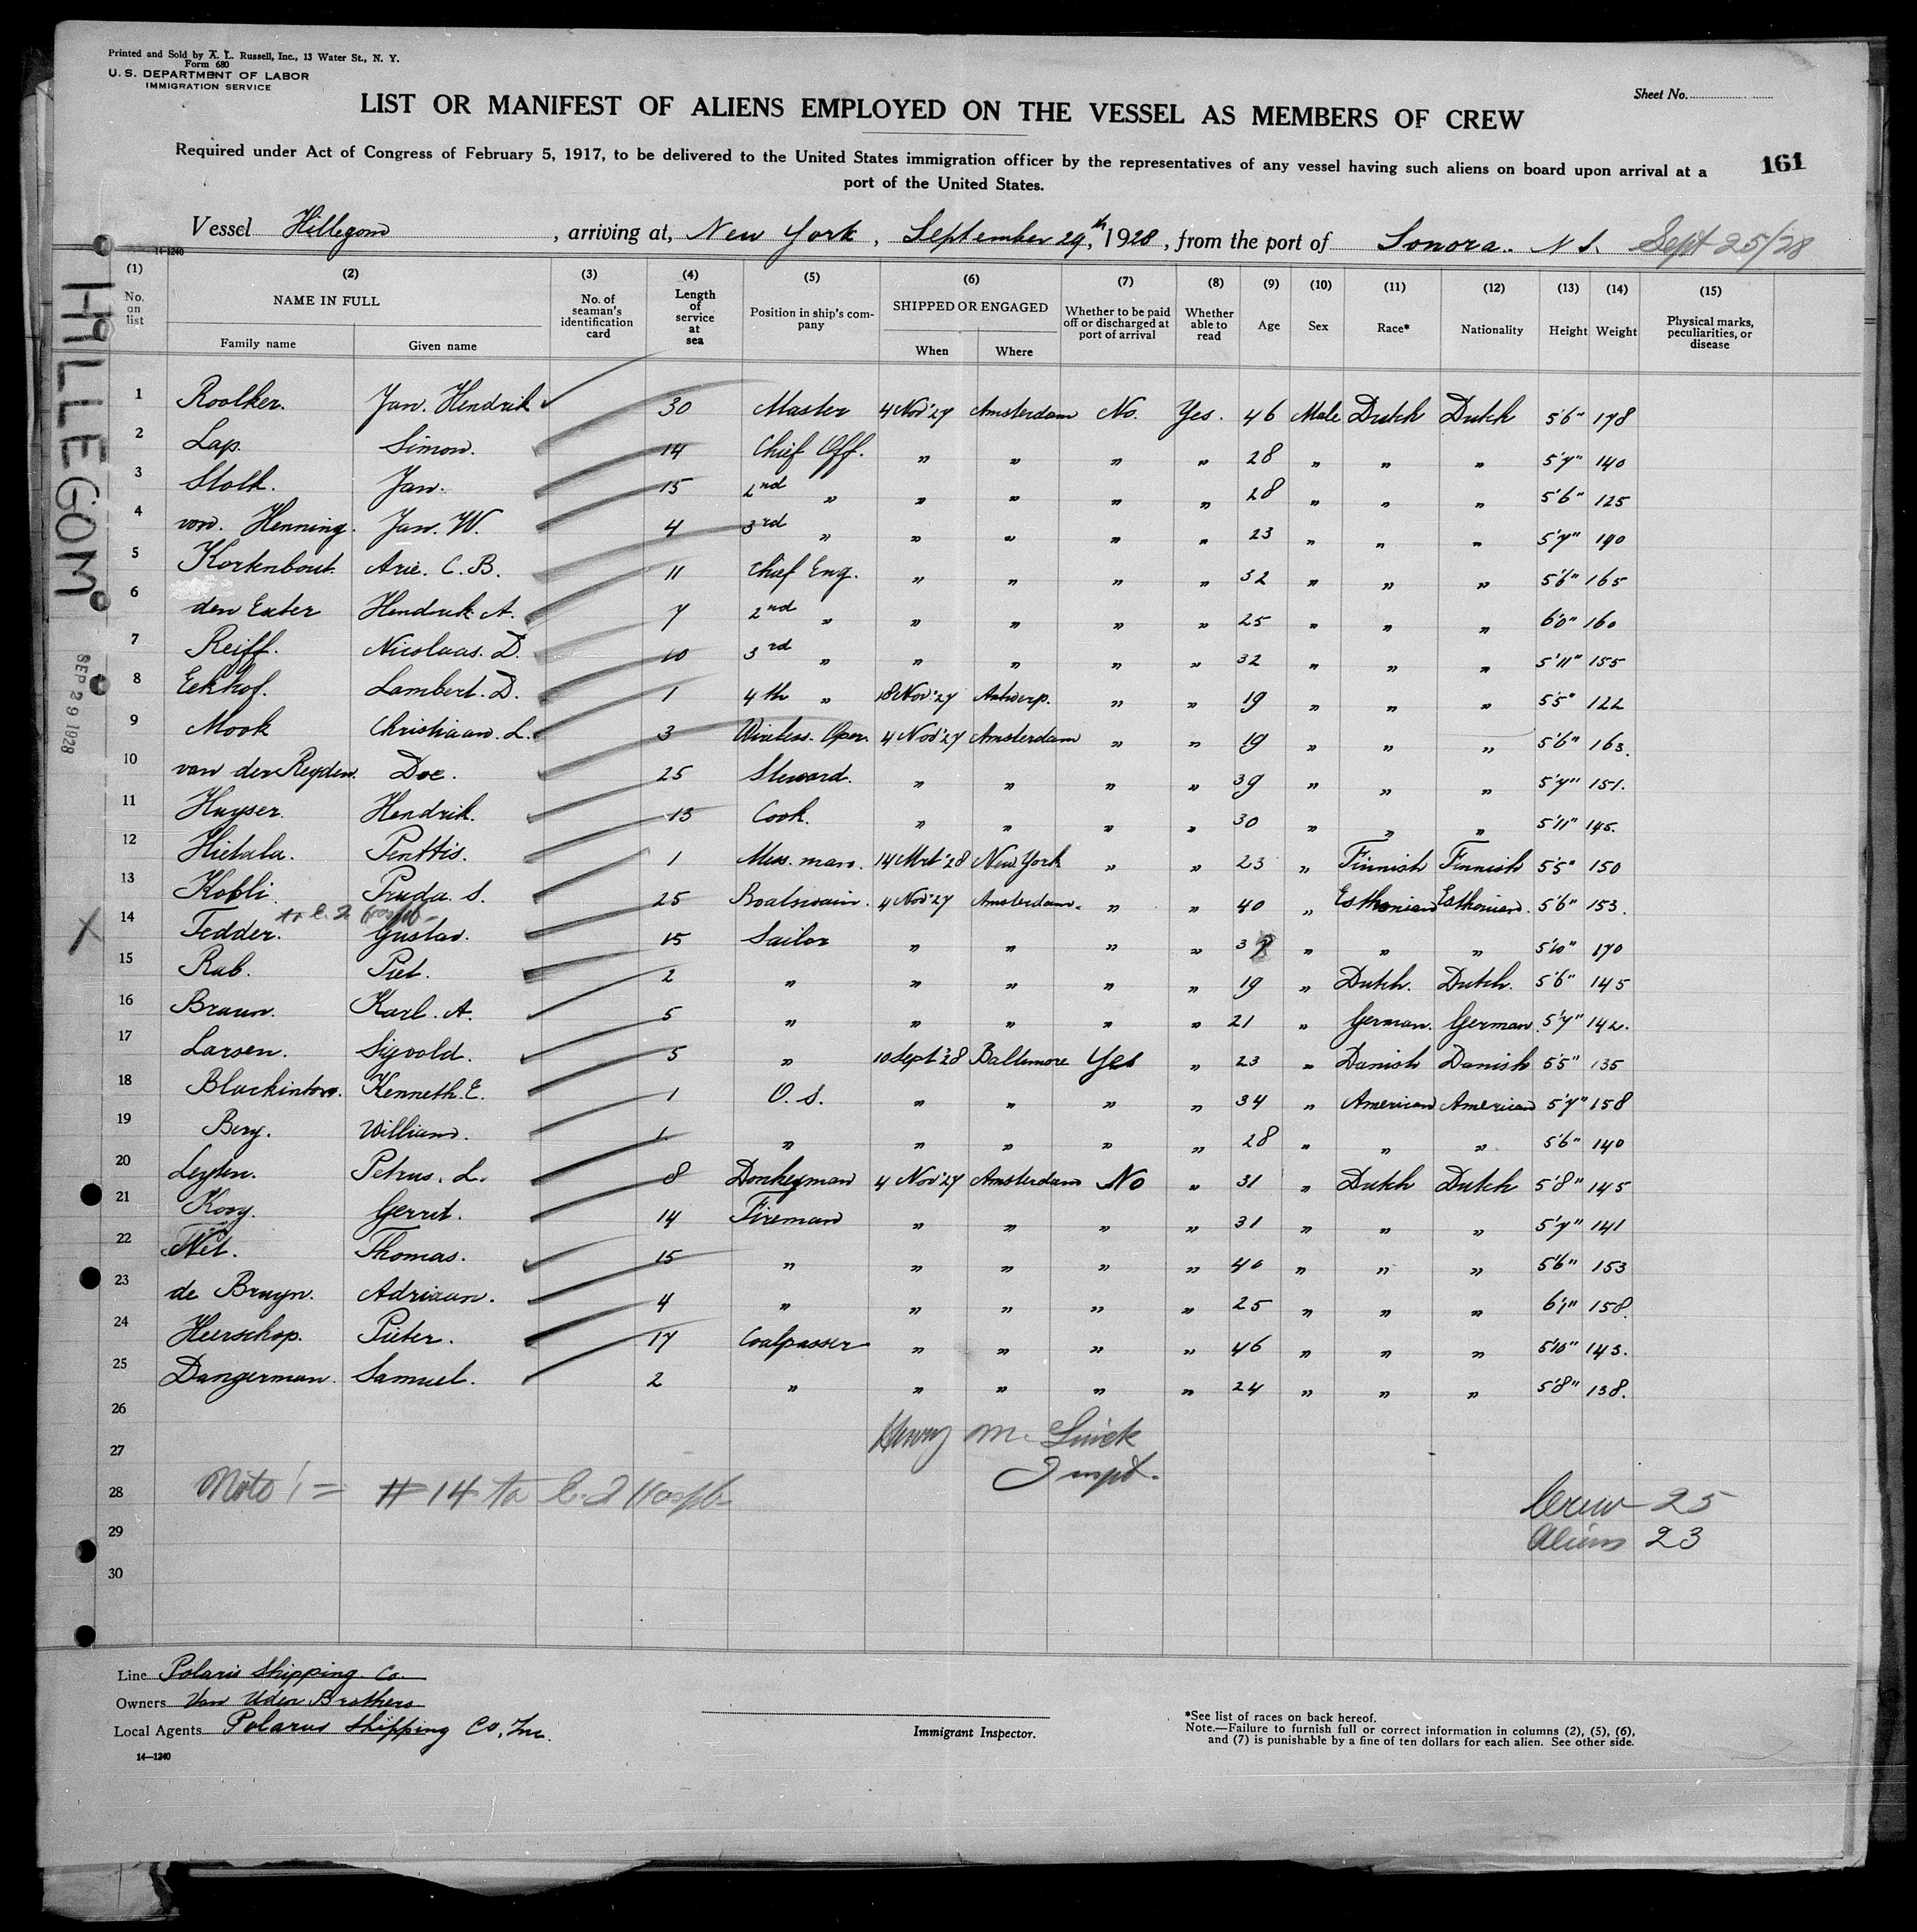 Printed and Sold by A. L. Russell, Inc., 13 Water St., N. Y.
Form 680
U. S. DEPARTMENT OF LABOR
IMMIGRATION SERVICE
Sheet No.
LIST OR MANIFEST OF ALIENS EMPLOYED ON THE VESSEL AS MEMBERS OF CREW
Required under Act of Congress of February 5, 1917, to be delivered to the United States immigration officer by the representatives of any vessel having such aliens on board upon arrival at a
port of the United States.
161
Vessel Hillegom, arriving at, New York, September 29,th 1928, from the port of Sonora. N S. Sept 25/28
14-1240
(1) (2) (3) (4) (5) (6) (7) (8) (9) (10) (11) (12) (13) (14) (15)
No. on list NAME IN FULL No. of seaman's identification card Length of service at sea Position in ship's company SHIPPED OR ENGAGED Whether to be paid off or discharged at port of arrival Whether able to read Age Sex Race* Nationality Height Weight Physical marks, peculiarities, or disease
Family name Given name When Where
1 Roolker. Jan. Hendrik 30 Master 4 Nov '27 Amsterdam No. Yes. 46 Male Dutch Dutch 5'6" 178
2 Lap. Simon. 14 Chief Off. " " " " 28 " " " 5'7" 140
3 Stolk. Jan. 15 2nd " " " " " 28 " " " 5'6" 125
4 von. Henning. Jan. W. 4 3rd " " " " " 23 " " " 5'7" 190
5 Kortenbout. Arie. C. B. 11 Chief Eng. " " " " 32 " " " 5'6" 165
6 den Exter Hendrik A. 7 2nd " " " " " 25 " " " 6'0" 160
7 Reiff. Nicolaas. D. 10 3rd " " " " " 32 " " " 5'11" 155
8 Eekhof. Lambert. D. 1 4th " 18 Nov '27 Antwerp. " " 19 " " " 5'5" 122
9 Mook Christiaan. L. 3 Wireless. Oper. 4 Nov '27 Amsterdam " " 19 " " " 5'6" 163.
10 van der Reyden. Doe. 25 Steward. " " " " 39 " " " 5'7" 151.
11 Huyser. Hendrik. 13 Cook. " " " " 30 " " " 5'11" 145.
12 Hietala. Penttis. 1 Mess. man. 14 Mrt '28 New York " " 23 " Finnish Finnish 5'5" 150
13 Kobli. Pruda. S. 25 Boatswain. 4 Nov '27 Amsterdam. " " 40 " Esthonian Esthonian. 5'6" 153.
to E. I Hospt-
X 14 Fedder. Gustav. 15 Sailor " " " " " " " 5'10" 170
15 Rab. Piet. 2 " " " " " 19 " Dutch. Dutch. 5'6" 145
16 Braun. Karl. A. 5 " " " " " 21 " German. German. 5'7" 142.
17 Larsen. Sigvold. 5 " 10 Sept '28 Baltimore Yes " 23 " Danish Danish 5'5" 135
18 Blackinton. Kenneth. E. 1 O. S. " " " " 34 " American American 5'7" 158
19 Bery. William. 1 " " " " " 28 " " " 5'6" 140
20 Leyten. Petrus. L. 8 Donkeyman 4 Nov '27 Amsterdam No " 31 " Dutch Dutch 5'8" 145
21 Kooy. Gerrit. 14 Fireman " " " " 31 " " " 5'7" 141
22 Thomas. 15 " " " " " 40 " " " 5'6" 153
23 de Bruyn. Adriaan. 4 " " " " " 25 " " " 6'1" 158.
24 Heerschop. Pieter. 17 Coalpasser " " " " 46 " " " 5'10" 143.
25 Dangerman. Samuel. 2 " " " " " 24 " " " 5'8" 138.
26
27
28
29
30
Henry M.
Inspt.
Note! = #14 to E. I Hospt-
Crew - 25
Aliens 23
HILLEGOM
SEP 29 1928
Line Polaris Shipping. Co.
Owners Van Uden Brothers
Local Agents Polarus Shipping Co, Inc.
14—1240
Immigrant Inspector.
*See list of races on back hereof.
Note.—Failure to furnish full or correct information in columns (2), (5), (6),
and (7) is punishable by a fine of ten dollars for each alien. See other side.